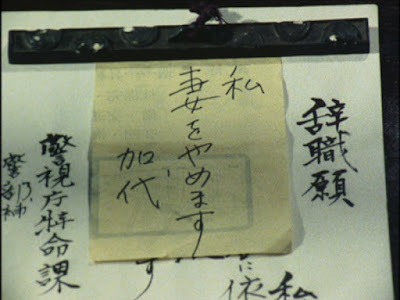 辞職願
私
に依
す
私
妻をやめます
加代
警視庁特命課
警部補